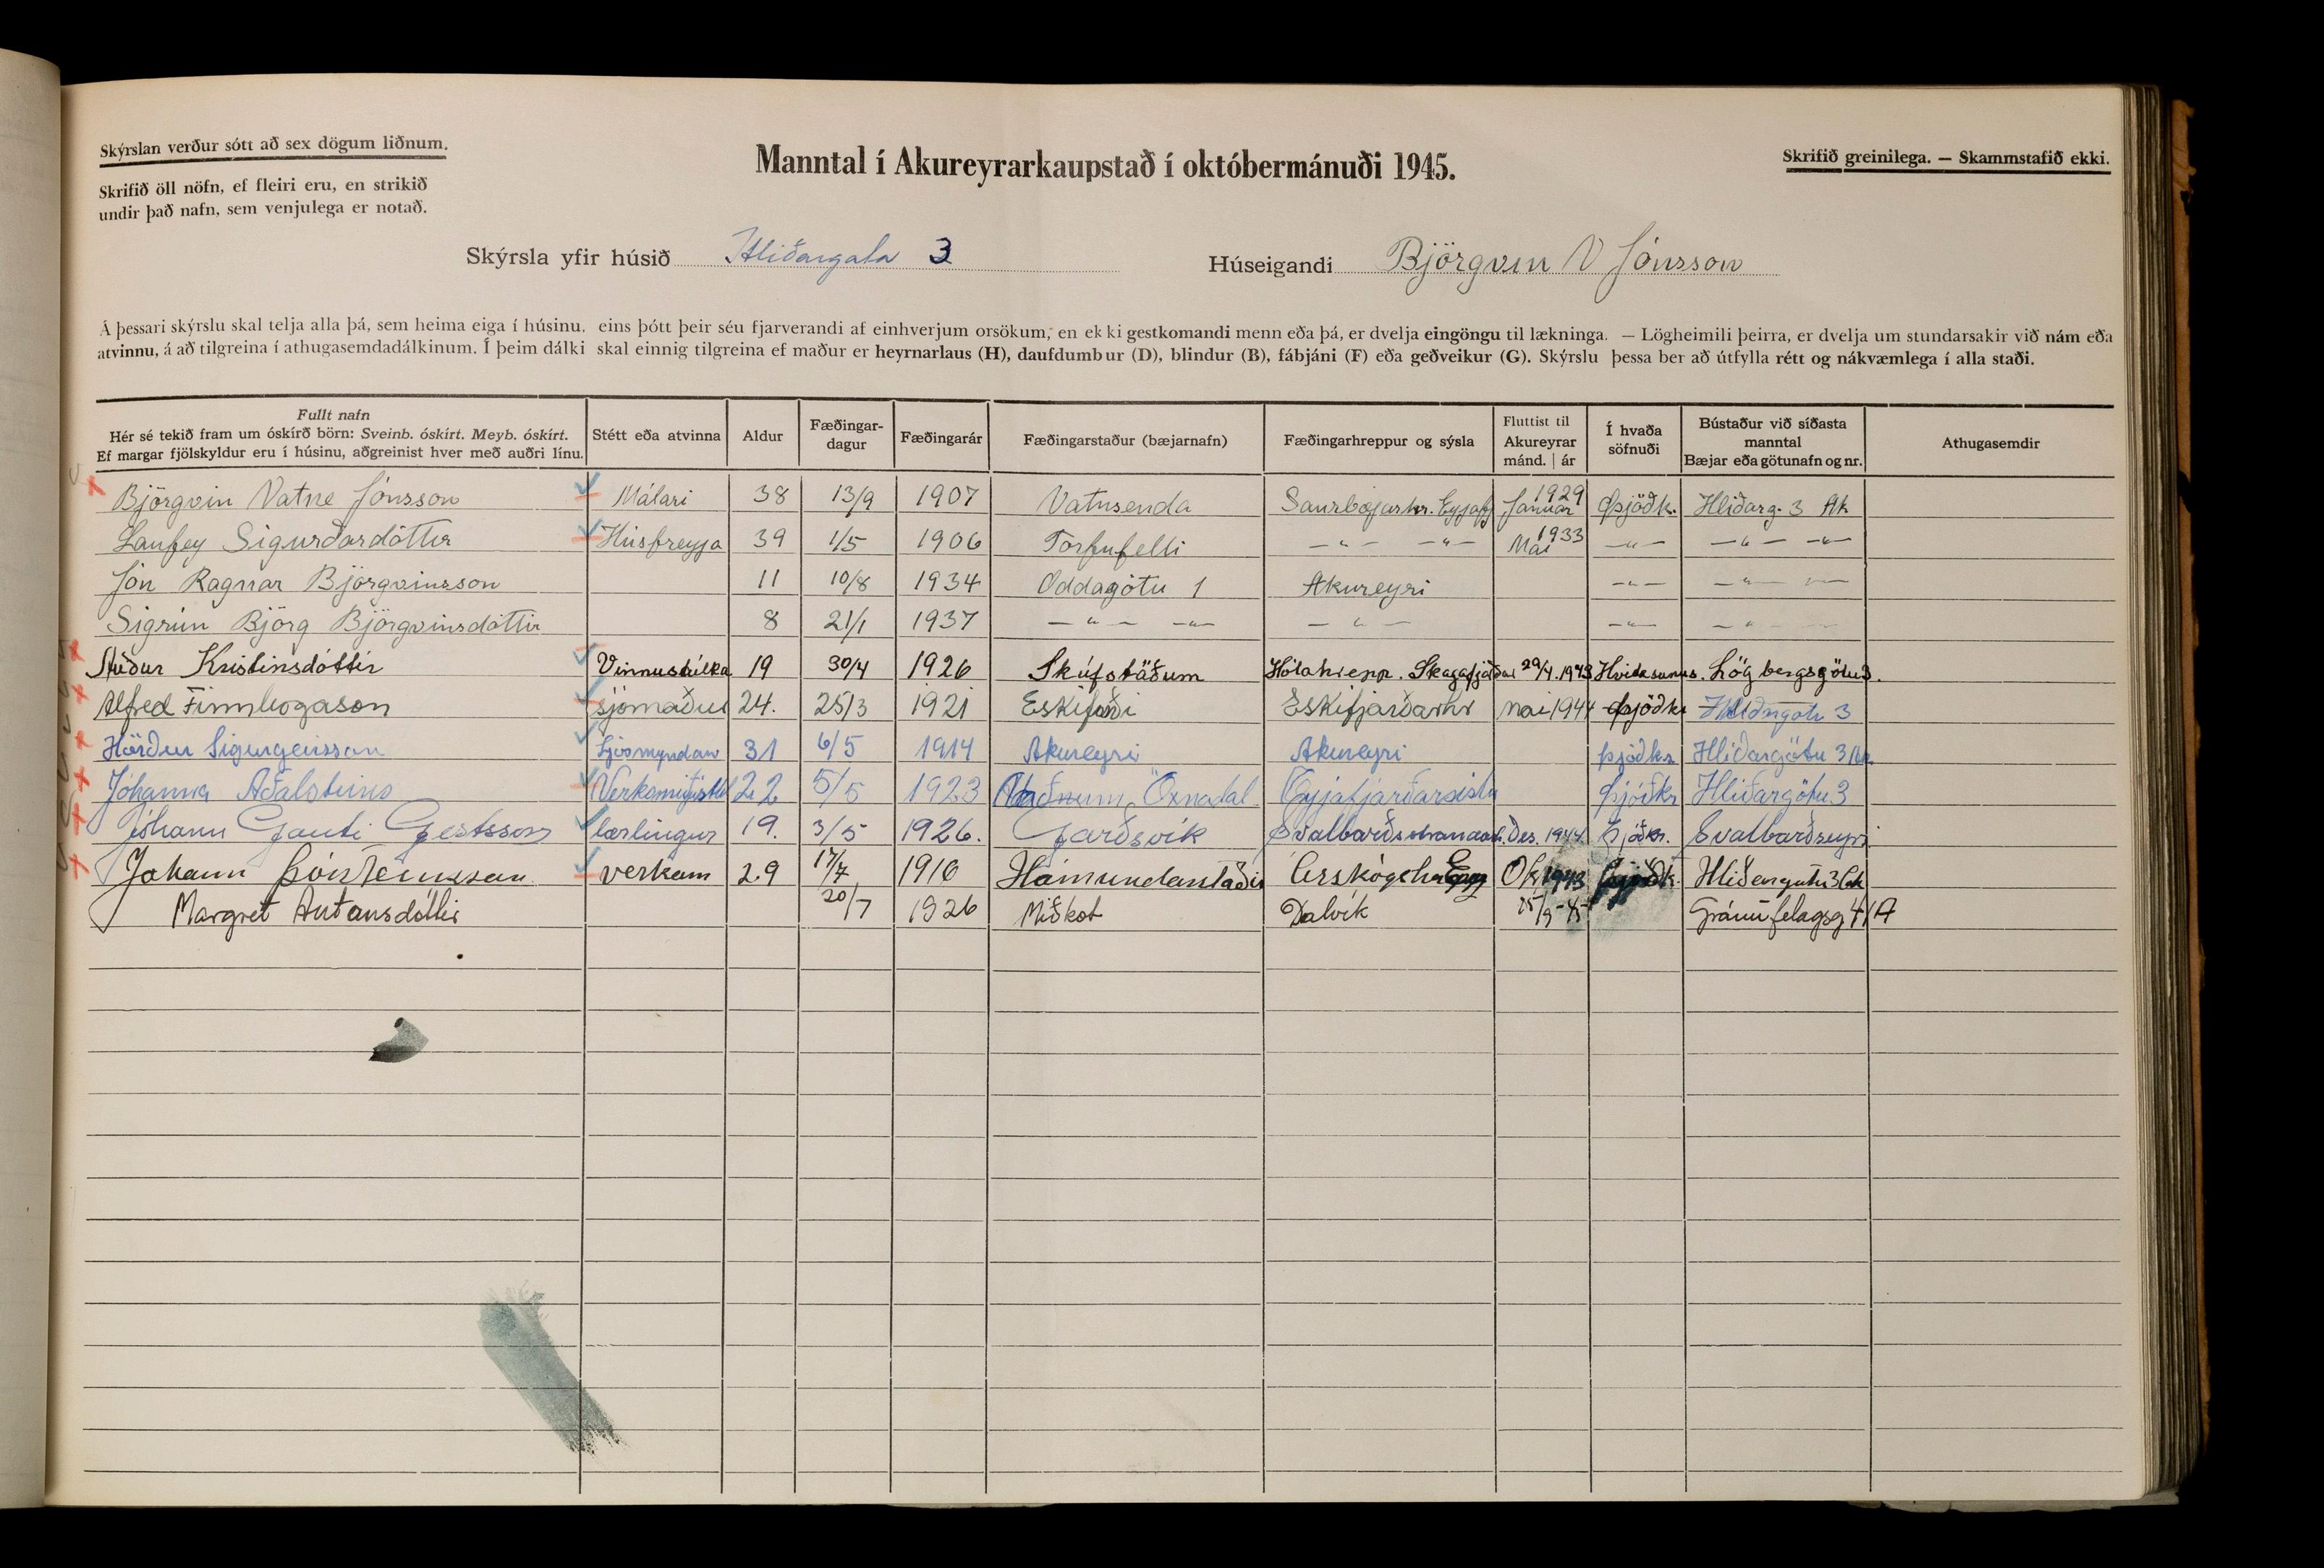 Skýrslan verður sótt að sex dögum liðnum.
Skrifið öll nöfn, ef fleiri eru, en strikið
undir það nafn, sem venjulega er notað.
Manntal í Akureyrarkaupstað í októbermánuði 1945.
Skrifið greinilega. — Skammstafið ekki.
Skýrsla yfir húsið Hlíðargata 3 Húseigandi Björgvin V Jónsson
Á þessari skýrslu skal telja alla þá, sem heima eiga í húsinu, eins þótt þeir séu fjarverandi af einhverjum orsökum, en ekki gestkomandi menn eða þá, er dvelja eingöngu til lækninga. — Lögheimili þeirra, er dvelja um stundarsakir við nám eða
atvinnu, á að tilgreina í athugasemdadálkinum. Í þeim dálki skal einnig tilgreina ef maður er heyrnarlaus (H), daufdumbur (D), blindur (B), fábjáni (F) eða geðveikur (G). Skýrslu þessa ber að útfylla rétt og nákvæmlega í alla staði.
Fullt nafn
Hér sé tekið fram um óskírð börn: Sveinb. óskírt. Meyb. óskírt.
Ef margar fjölskyldur eru í húsinu, aðgreinist hver með auðri línu.
Stétt eða atvinna
Aldur
Fæðingar-
dagur
Fæðingarár
Fæðingarstaður (bæjarnafn)
Fæðingarhreppur og sýsla
Fluttist til
Akureyrar
mánd. | ár
Í hvaða
söfnuði
Bústaður við síðasta
manntal
Bæjar eða götunafn og nr.
Athugasemdir
Björgvin Vatne Jónsson Málari 38 13/9 1907 Vatnsenda Saurbæjarhr. Eyjafj Janúar 1929 Þjóðk. Hlíðarg. 3 Ak
Laufey Sigurðardóttir Húsfreyja 39 1/5 1906 Torfufelli — " — — " — Mai 1933 — " — — " — — " —
Jón Ragnar Björgvinsson 11 10/8 1934 Oddagötu 1 Akureyri — " — — " — — " —
Sigrún Björg Björgvinsdóttir 8 21/1 1937 — " — — " — — " — — " — — " —
Kristinsdóttir Vinnustúlka 19 30/4 1926 Skúfstöðum Hólahrepp. Skagafjarðar 29/4. 1943 Hvítasunnus. Lögbergsgötu 3.
Alfred Finnbogason sjómaður 24. 25/3 1921 Eskifirði Eskifjarðarhr mai 1944 þjóðk Hlíðargötu 3
Hörður Sigurgeirsson Ljósmyndari 31 6/5 1914 Akureyri Akureyri þjóðkr Hlíðargötu 3 Ak
Jóhanna Aðalsteins 22 5/5 1923 Öxnadal Eyjafjarðarsýslu þjóðkr Hlíðargötu 3
Jóhann Gauti Gestsson lærlingur 19. 3/5 1926. Garðsvík Svalbarðsstrandarh. Des. 1944 þjóðkr. Svalbarðseyri
Johann Þorsteinsson verkam 29 17/7 1916 Hámundarstaðir Árskógshr Ok 1943 þjóðk. Hlíðargötu 3 Ak
Margret Antonsdóttir 20/7 1926 Miðkot Dalvík 25/9-45 Gránufelagsg 41 A